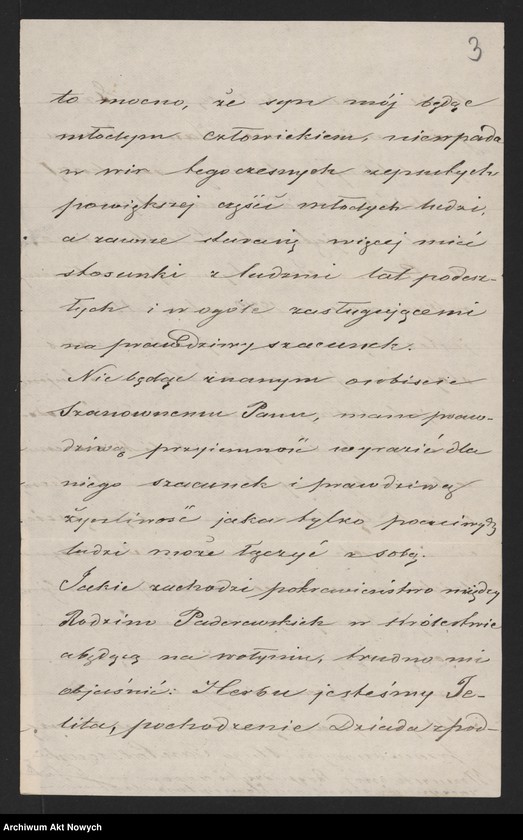 3
to mocno, że syn mój będąc
młodym człowiekiem, niewpada
w wir tegoczesnych zepsutych
powiększej części młodych ludzi,
a zawsze starają więcej mieć
stosunki z ludzmi lat podesz-
łych i w ogóle zasługującemi
na prawdziwy szacunek.
Nie będąc znanym osobiscie
Szanownemu Panu, mam praw-
dziwą przyjemność wyrazić dla
niego szacunek i prawdziwą
życzliwość jaka tylko poczciwych
ludzi może łączyć z sobą.
Jakie zachodzi pokrewieństwo między
Rodziną Paderewskich w Królestwie
a będącą na Wołyniu, trudno mi
objaśnić: Herbu jesteśmy Je-
lita, pochodzenie Dziada z pod-
Archiwum Akt Nowych